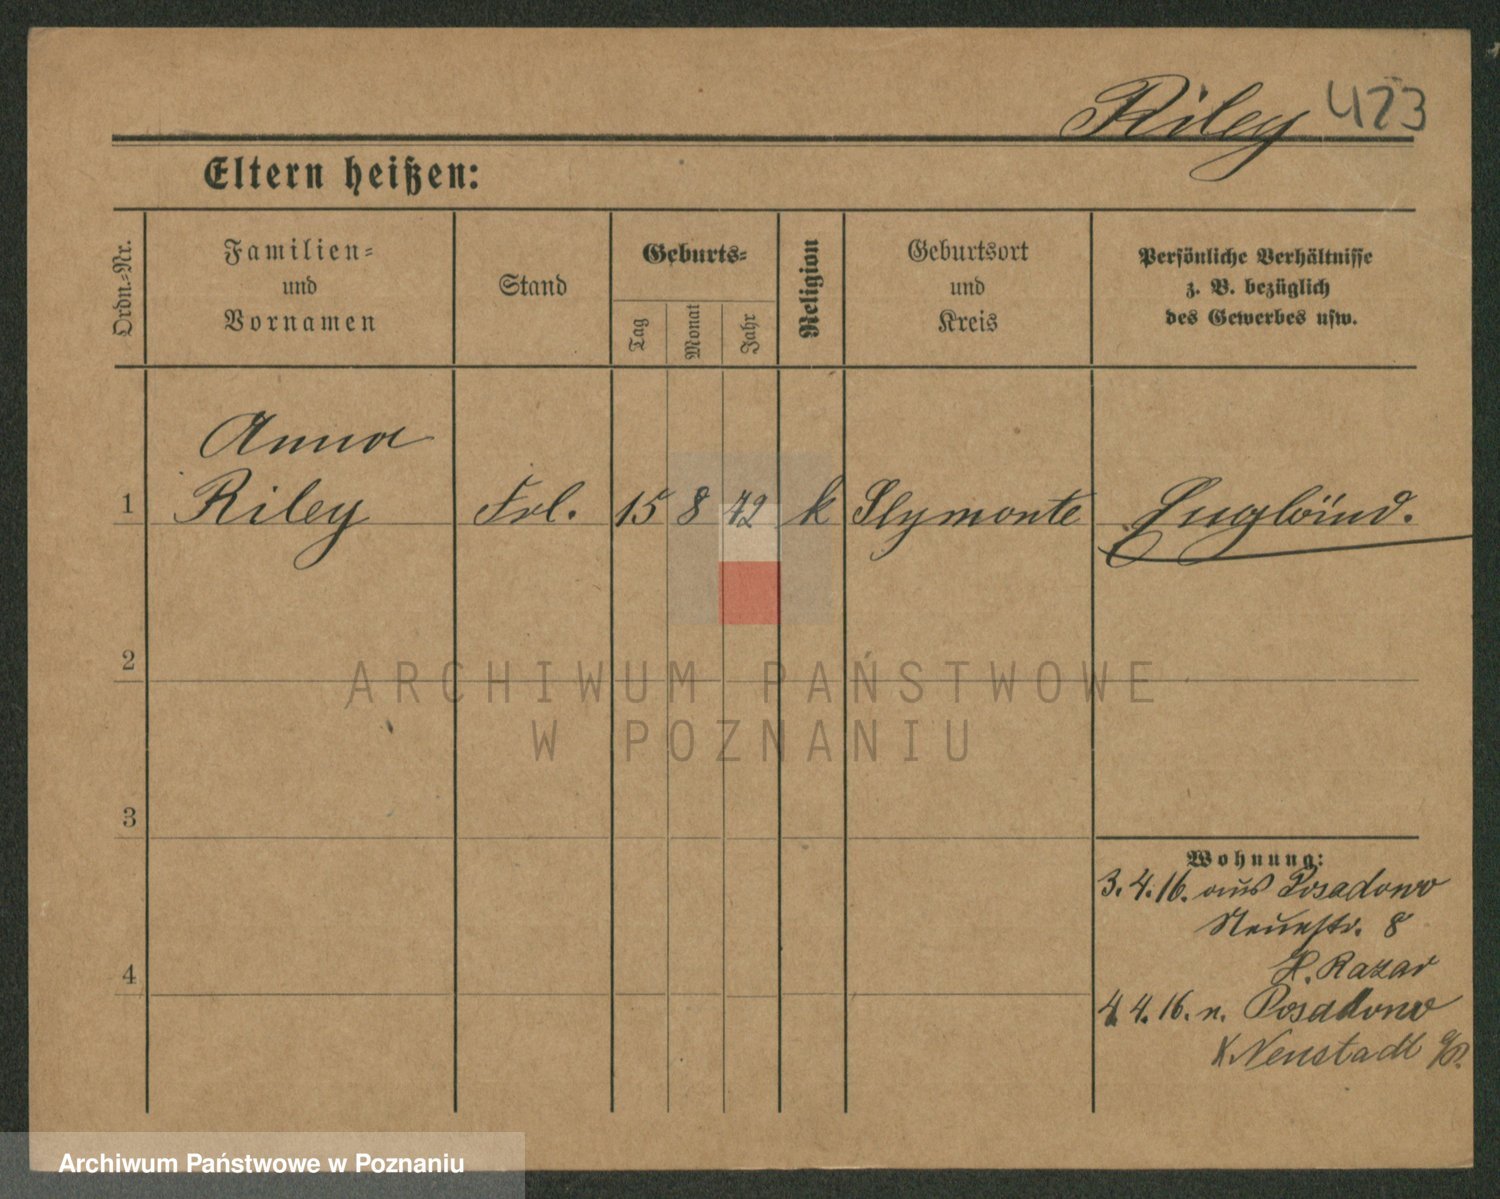 Riley 423
Eltern heißen:
Ordn.-Nr.
Familien-
und
Vornamen
Stand
Geburts-
Tag
Monat
Jahr
Religion
Geburtsort
und
Kreis
Persönliche Verhältnisse
z. B. bezüglich
des Gewerbes usw.
Anna
1 Riley Frl. 15 8 72 k Slymonte Engländ.
2
ARCHIWUM PAŃSTWOWE
W POZNANIU
3
Wohnung:
3.4.16. aus Posadowo
Neuestr. 8
H. Razar
4
4 4.16. n. Posadowo
K Neustadt
Archiwum Państwowe w Poznaniu